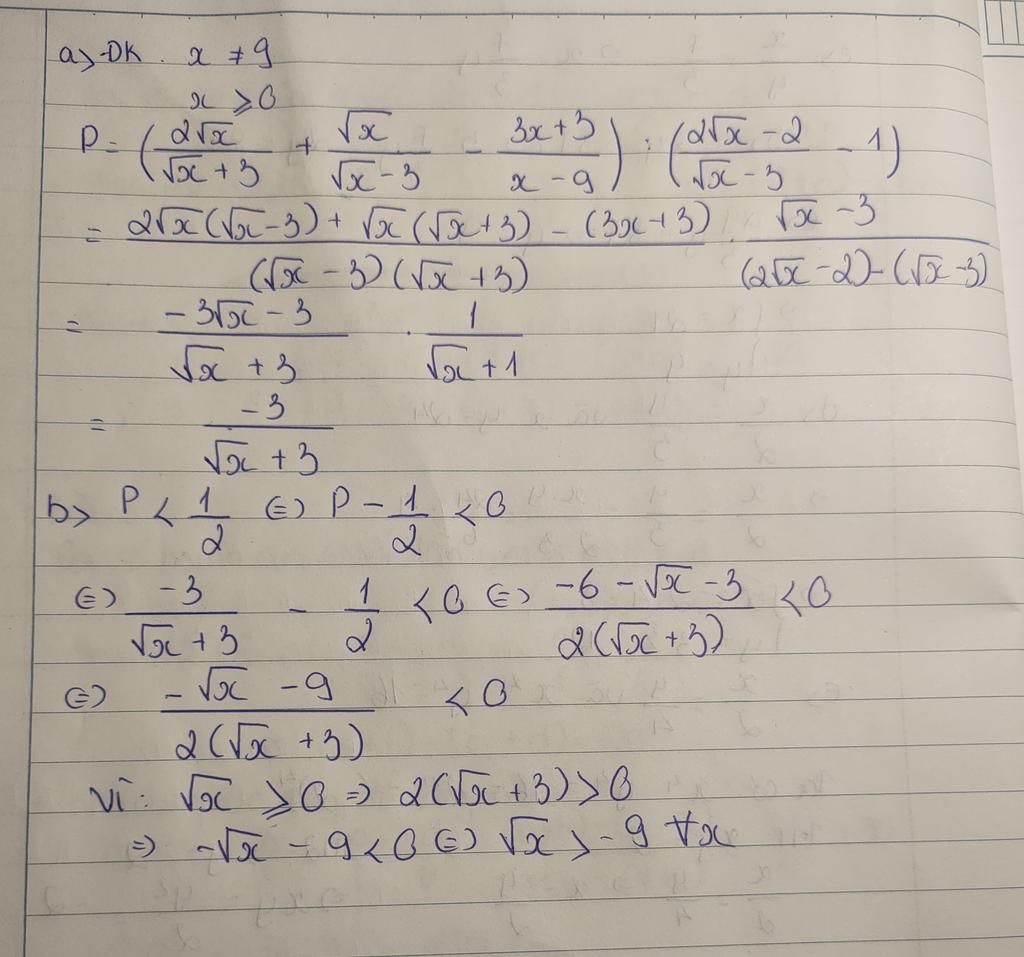 a> ĐK. x ≠ 9
x ≥ 0
P = (2√x/(√x + 3) + √x/(√x - 3) - (3x + 3)/(x - 9)) : ((2√x - 2)/(√x - 3) - 1)
= (2√x(√x - 3) + √x(√x + 3) - (3x + 3))/((√x - 3)(√x + 3)) . (√x - 3)/((2√x - 2) - (√x - 3))
= (-3√x - 3)/(√x + 3) . 1/(√x + 1)
= -3/(√x + 3)
b> P < 1/2 ⇔ P - 1/2 < 0
⇔ -3/(√x + 3) - 1/2 < 0 ⇔ (-6 - √x - 3)/(2(√x + 3)) < 0
⇔ (-√x - 9)/(2(√x + 3)) < 0
Vì: √x ≥ 0 ⇒ 2(√x + 3) > 0
⇒ -√x - 9 < 0 ⇔ √x > -9 ∀x